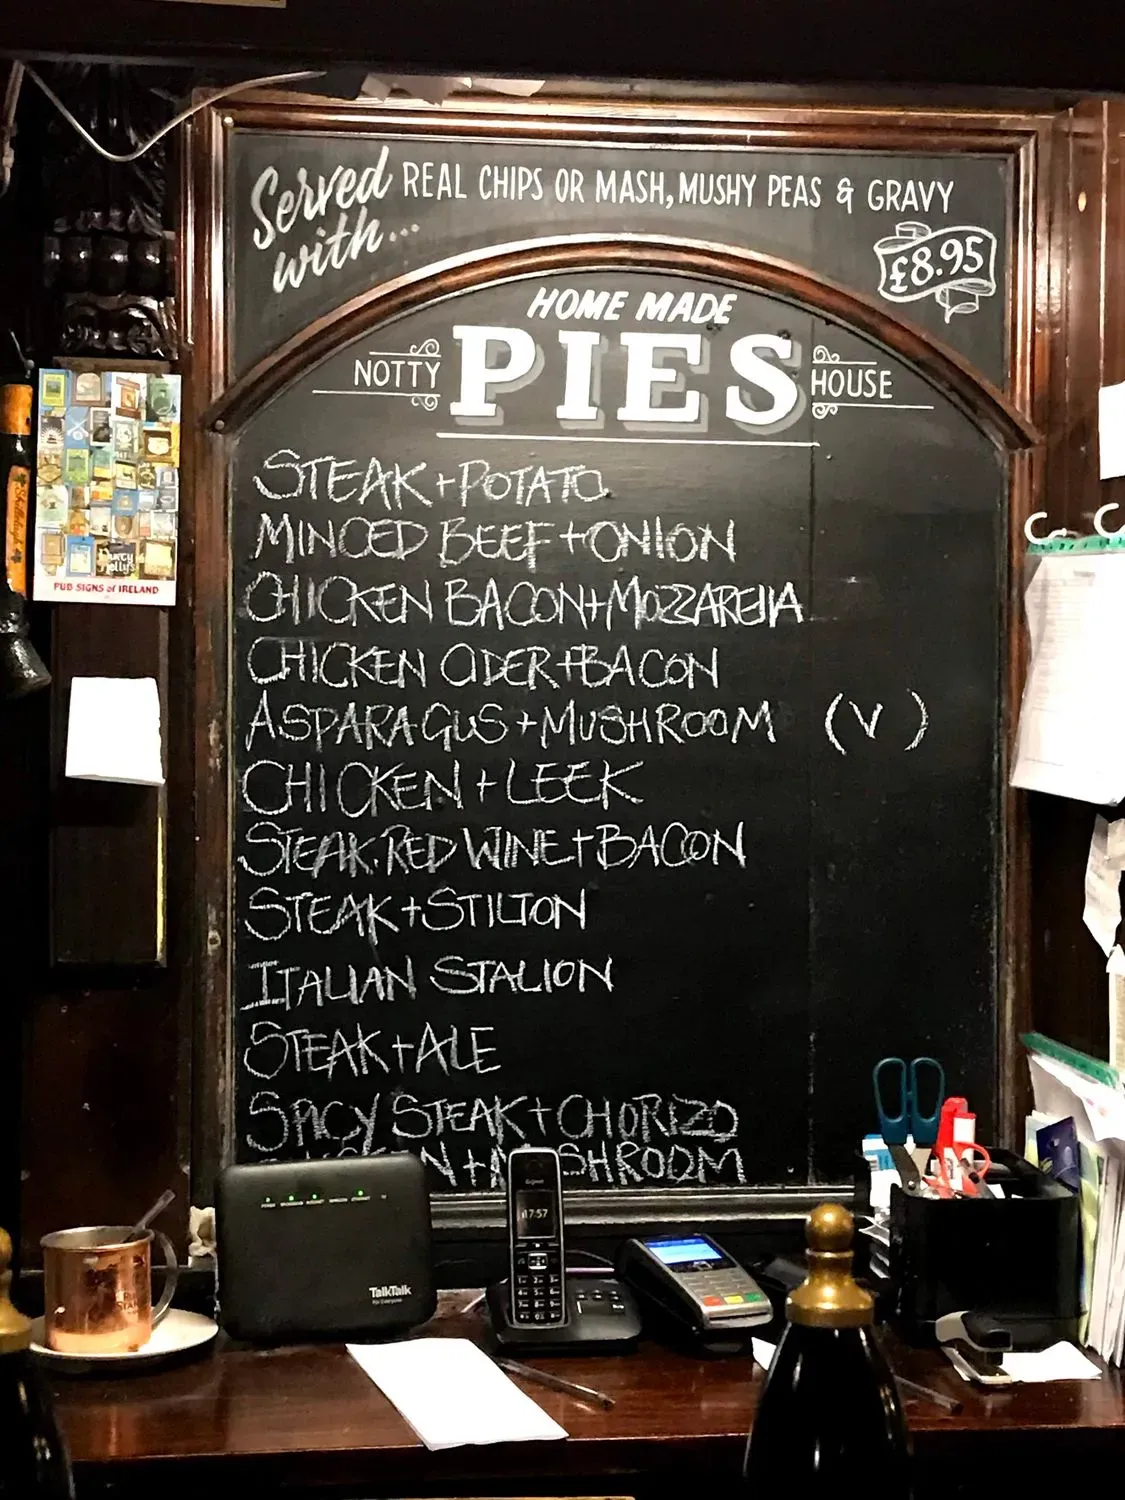 Served with... REAL CHIPS OR MASH, MUSHY PEAS & GRAVY
£8.95
HOME MADE
NOTTY PIES HOUSE
STEAK + POTATO
MINCED BEEF + ONION
CHICKEN BACON + MOZZARELLA
CHICKEN CIDER + BACON
ASPARAGUS + MUSHROOM (V)
CHICKEN + LEEK
STEAK, RED WINE + BACON
STEAK + STILTON
ITALIAN STALION
STEAK + ALE
SPICY STEAK + CHORIZO
N + MUSHROOM
PUB SIGNS of IRELAND
Gigaset
17:57
TalkTalk